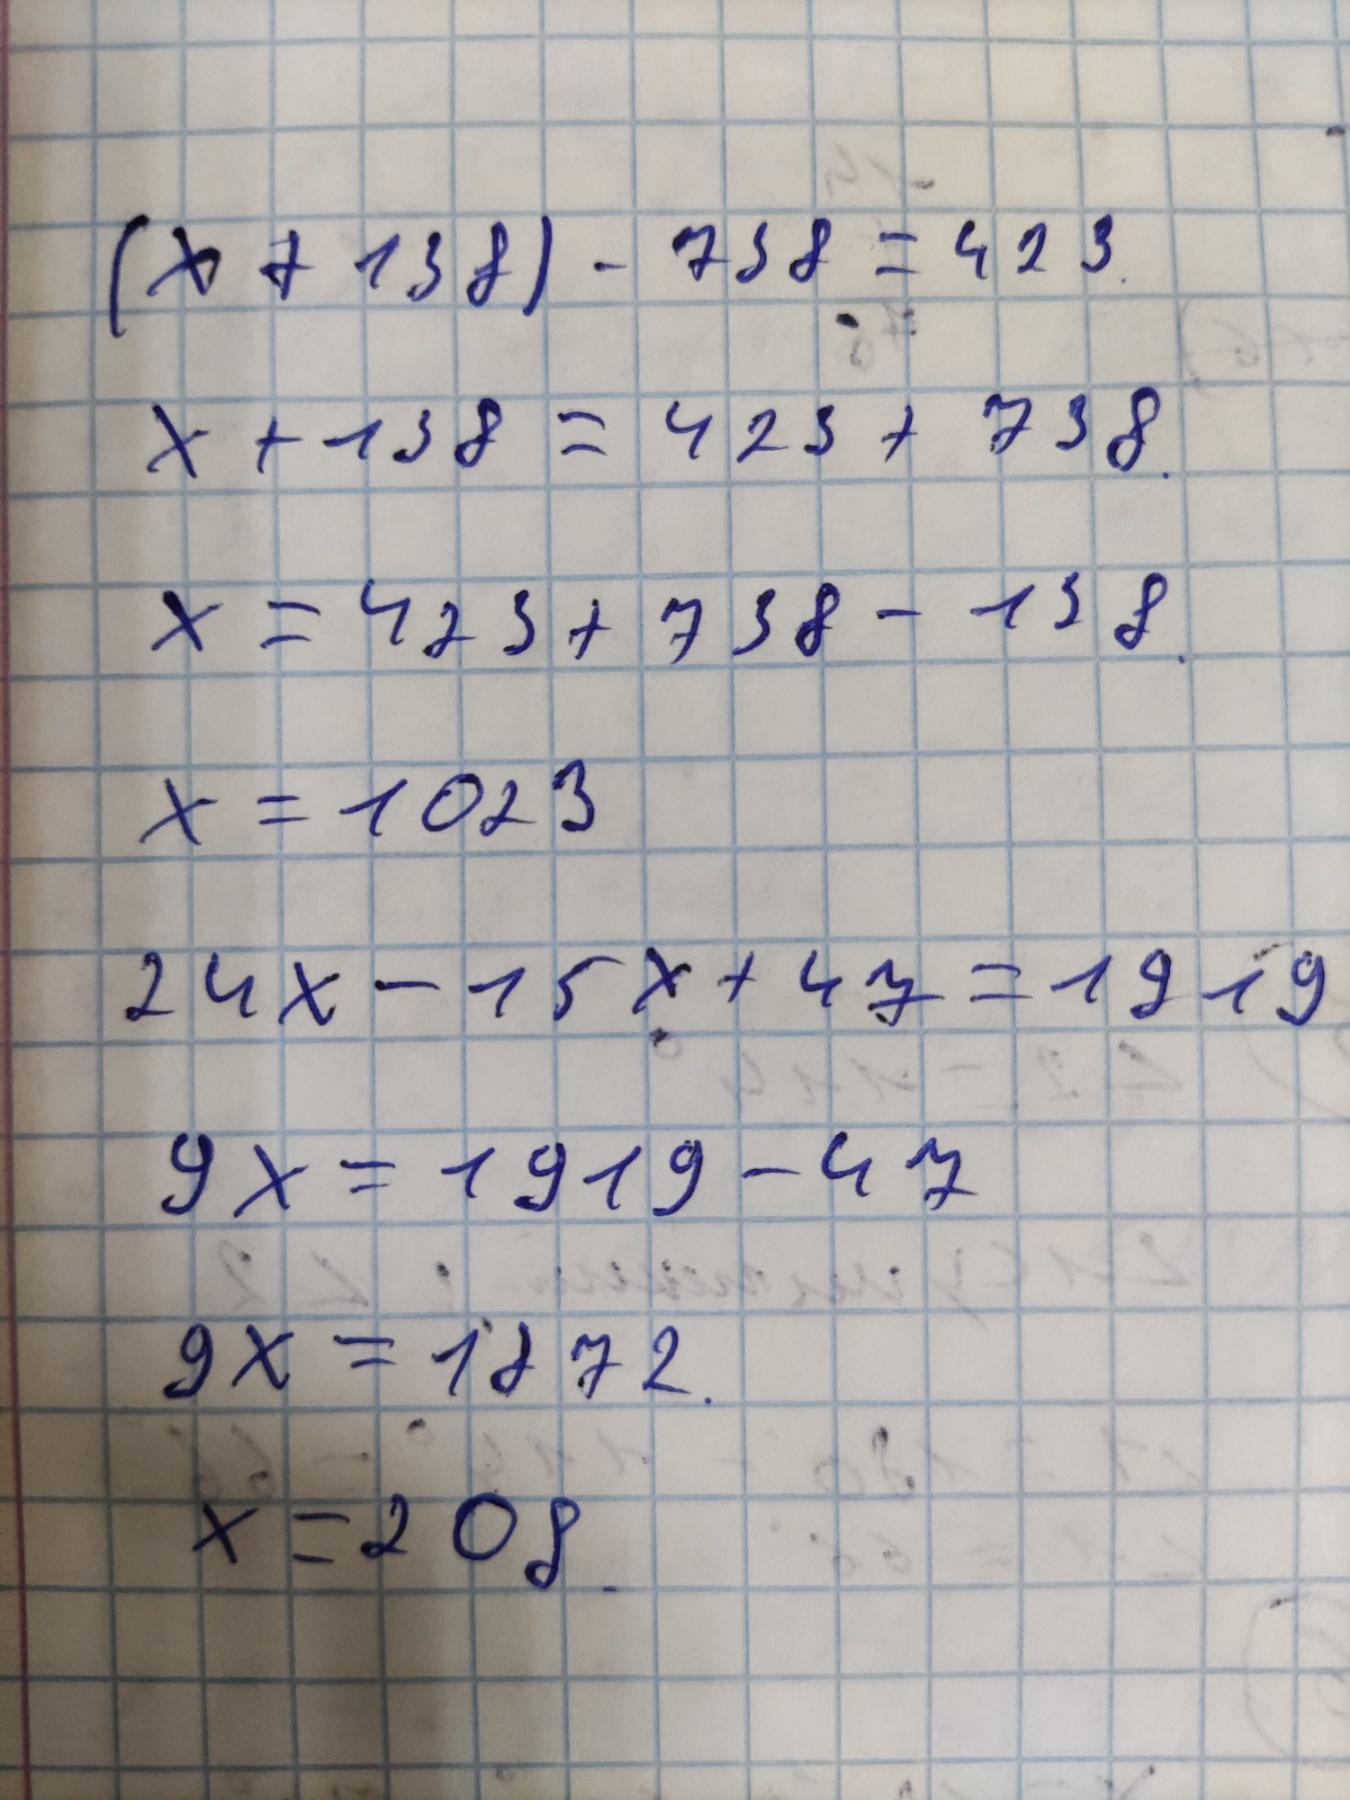 (x + 138) - 738 = 423.
x + 138 = 423 + 738.
x = 423 + 738 - 138.
x = 1023
24x - 15x + 47 = 1919
9x = 1919 - 47
9x = 1872.
x = 208.